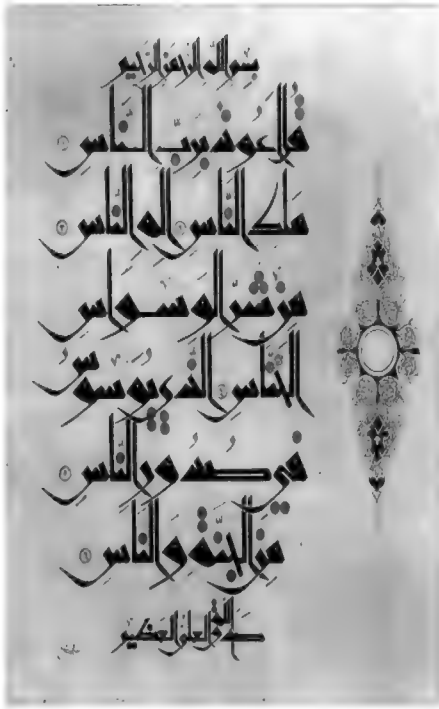 بسم الله الرحمن الرحيم
قُل أعوذ بربّ النّاسِ ۝١
مَلك النّاس ۝٢ إله النّاس ۝٣
من شرّ الوسواس
الخنّاسِ ۝٤ الّذي يوسوسُ
في صُدُور النّاسِ ۝٥
من الجنّة وَالنّاسِ ۝٦
صدق الله العلي العظيم